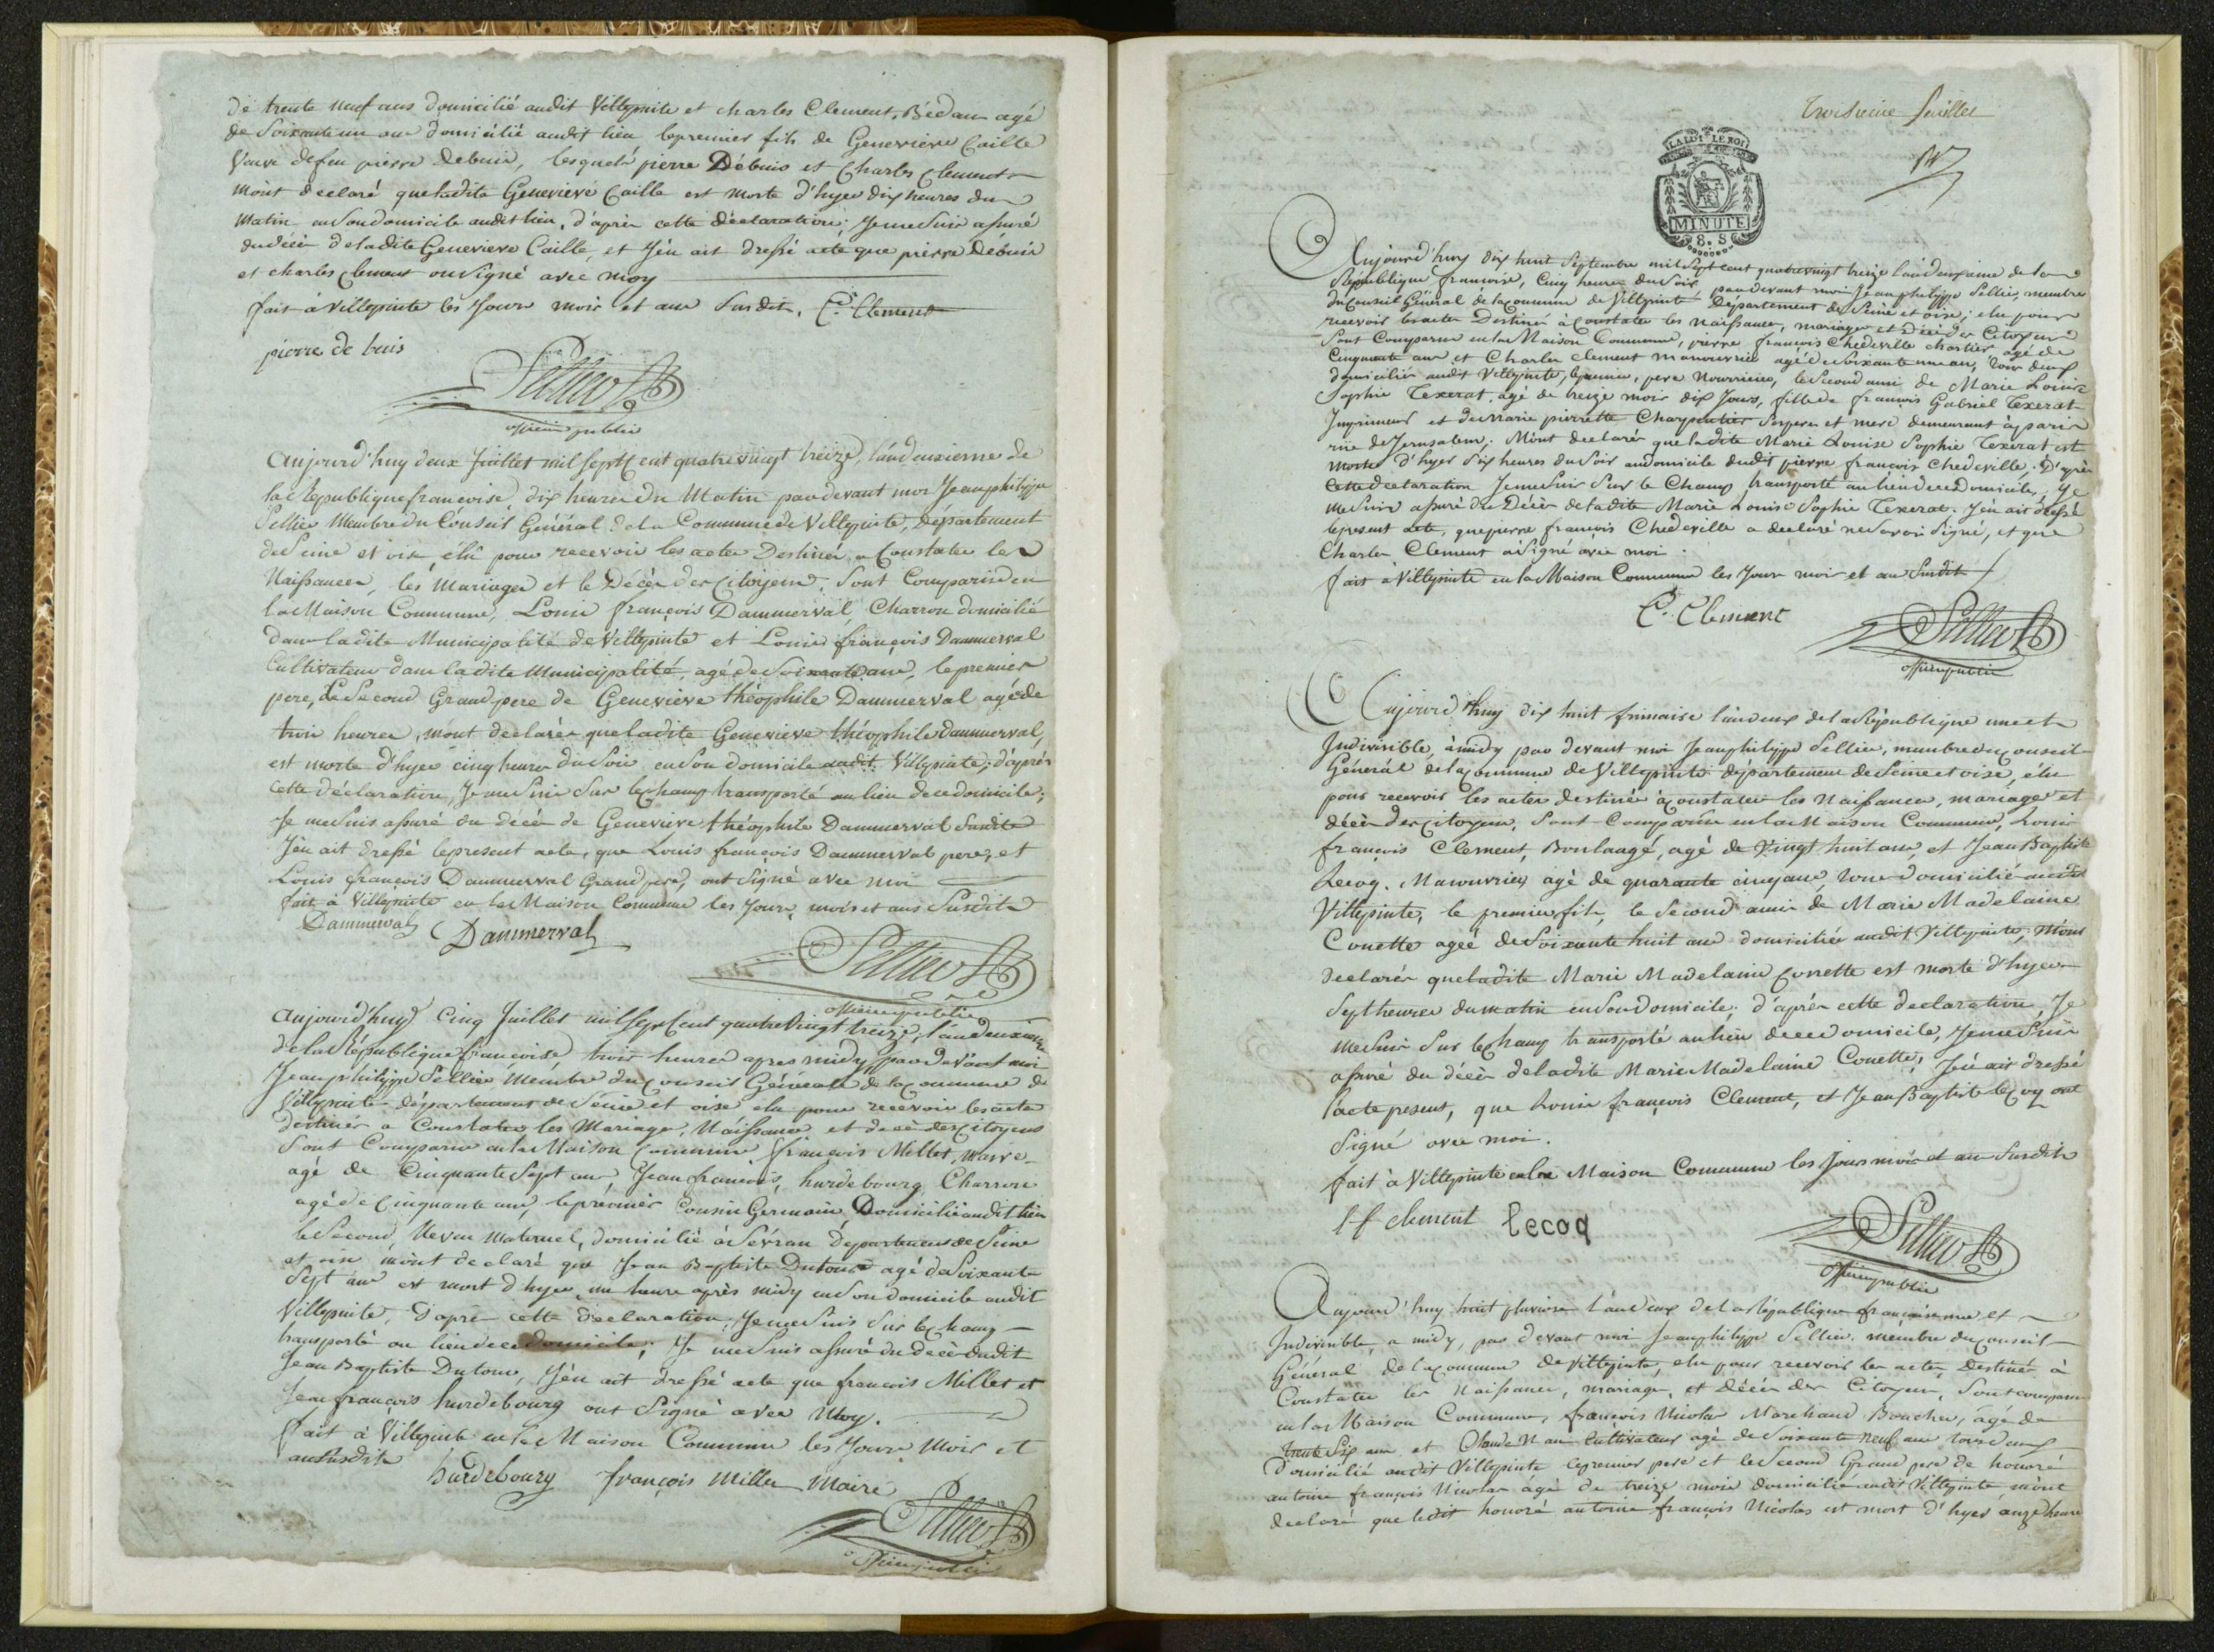 de trente neuf ans domicilié audit Villepinte et charles Clement, Bédau agé
de Soixante un an domicilié audit lieu le premier fils de Genevieve Caille
Veuve defeu pierre Debuis, lesquels pierre Débuis et Charles Clement
m'ont declaré que ladite Genevieve Caille est morte d'hyer dix heures du
Matin en Son domicile audit lieu, d'après cette déclaration, Je me Suis assuré
du décès de ladite Genevieve Caille, et J'en ait dressé acte que pierre Debuis
et charles Clement on Signé avec moy
fait à Villepinte les Jours mois et an Susdit. C. Clement
pierre de buis
Sellier
officier public
Aujourd'huy deux Juillet mil Sept Cent quatre vingt treize, l'an deuxieme de
la République francoise, dix heures du Matin par devant moi Jean philippe
Sellier Membre du Conseil Général de la Commune de Villepinte, département
de Seine et oise élu pour recevoir les actes Destinés a Constater les
Naissances, les Mariages et le Décès des Citoyens, Sont Comparus en
la Maison Commune, Louis françois Dammerval, Charron domicilié
dans ladite Municipalité de Villepinte et Louis françois Dammerval
Cultivateur dans ladite Municipalité, agé de Soixante ans, le premier
pere, le Second Grand pere de Genevieve théophile Dammerval agé de
trois heures, m'ont declarés que ladite Genevieve théophile Dammerval,
est morte d'hyer cinq heures du Soir en Son domicile audit Villepinte; d'après
cette déclaration, Je me Suis Sur le Champ transporté au lieu de ce domicile;
Je me Suis assuré du décès de Genevieve théophile Dammerval Susdite
J'en ait dressé le present acte, que Louis françois Dammerval pere, et
Louis françois Dammerval Grand pere, ont Signé avec moi
fait à Villepinte en la Maison Commune les Jours mois et ans Susdits
Dammerval Dammerval
Sellier
officier public
Aujourd'huy Cinq Juillet mil Sept Cent quatre Vingt treize, l'an deuxieme
de la République francoise, trois heures apres midy par devant moi
Jean philippe Sellier Membre du Conseil Général de la Commune de
Villepinte département de Seine et oise elu pour recevoir les actes
destinés a Constater les Mariages, Naissances et decès des Citoyens
Sont Comparus en la Maison Commune françois Millet, Maire
agé de Cinquante Sept ans, Jean francois, hurdebourg Charron
agé de Cinquante ans, le premier Cousin Germain Domicilié audit lieu
le Second, Neveu Maternel, domicilié à Sévran Département de Seine
et oise m'ont declaré que Jean Baptiste Dutour agé de Soixante
Sept ans est mort d'hyer, une heure après midy en Son domicile audit
Villepinte, D'après cette déclaration, Je me Suis Sur le Champ
transporté au lieu de ce domicile; Je me Suis assuré du decè dudit
Jean Baptiste Dutour, J'en ait dressé acte que francois Millet et
Jean françois hurdebourg ont Signé avec Moy.
fait à Villepinte en la Maison Commune les Jours Mois et
an Susdits
hurdebourg françois Millet Maire
Sellier
officier public
Troisieme feuillet
LA LOI LE ROI
MINUTE
8. S
Aujourd'huy dix huit Septembre mil Sept cent quatre vingt treize l'an deuxieme de la
République francoise, Cinq heures du Soir par devant moi Jean philippe Sellier, membre
du Conseil Général de la Commune de Villepinte Département de Seine et oise, elu pour
recevoir les actes Destinés à Constater les Naissances, mariages et décès des Citoyens
Sont Comparus en la Maison Commune, pierre françois Chedeville chartier agé de
Cinquante ans et Charles Clement manouvrier agé de Soixante un an, tous deux
domiciliés audit Villepinte, le premier, pere Nourricier, le Second ami de Marie Louise
Sophie Texerat, agé de treize mois dix Jours, fille de francois Gabriel Texerat
Imprimeur et de Marie pierrette Charpentier Ses pere et mere demeurant à paris
rüe de Jerusalem; M'ont declarés que ladite Marie Louise Sophie Texerat est
morte d'hyer Six heures du Soir au domicile dudit pierre françois Chedeville, D'après
Cette declaration Je me Suis Sur le Champ transporté au lieu de ce Domicile, Je
me Suis assuré du Décès de ladite Marie Louise Sophie Texerat. J'en ait dressé
le present acte, que pierre françois Chedeville a declaré ne Savoir Signé, et que
Charles Clement a Signé avec moi.
fait à Villepinte en la Maison Commune les Jour mois et an Susdit
C. Clement
Sellier
officier public
Aujourd'huy dix huit frimaire l'an deux de la République une et
Indivisible, à midy par devant moi Jean philippe Sellier, membre du Conseil
Général de la Commune de Villepinte département de Seine et oise, élu
pour recevoir les actes destinés à Constater les Naissances, mariages et
décès des Citoyens, Sont Comparus en la Maison Commune, Louis
françois Clement, Boulangé, agé de Vingt huit ans, et Jean Baptiste
Lecoq, Manouvrier agé de quarante cinq ans, tous domicilié audit
Villepinte, le premier fils, le Second ami de Marie Madelaine
Conette ageé de Soixante huit ans domiciliée audit Villepinte, m'ont
declarés que ladite Marie Madelaine Conette est morte d'hyer
Sept heures du matin en Son domicile, d'après cette declaration, Je
me Suis Sur le Champ transporté au lieu de ce domicile, Je me Suis
assuré du décès de ladite Marie Madelaine Conette, J'en ait dressé
l'acte present, que Louis françois Clement, et Jean Baptiste le Coq ont
Signé avec moi.
fait à Villepinte en la Maison Commune les Jours mois et an Susdits
l f clement lecoq
Sellier
officier public
Aujourd'huy huit pluviose l'an deux de la République françoise une et
Indivisible, a midy, par devant moi Jean philippe Sellier, membre du Conseil
Général de la Commune de Villepinte, elu pour recevoir les actes Destinés à
Constater les Naissances, mariages, et décès des Citoyens, Sont comparus
en la Maison Commune, françois Nicolas Marchand Boucher, agé de
trente Six ans et Claude Nau Cultivateur agé de Soixante Neuf ans tous deux
Domicilié audit Villepinte le premier pere et le Second Grand pere de honoré
antoine françois Nicolas âgé de treize mois domicilié audit Villepinte m'ont
declaré que ledit honoré antoine françois Nicolas est mort d'hyer onze heure